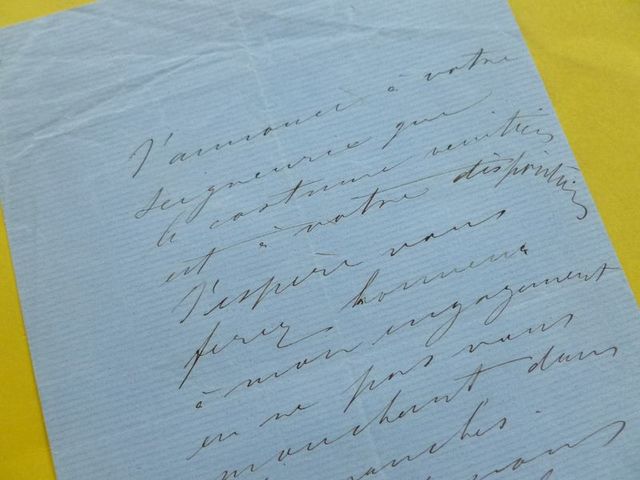 J'annonce à votre
seigneurie que
le costume venitien
est à votre disposition
J'espère vous
ferez honneur
à mon engagement
en ne pas vous
mouchant dans
manches.
vous